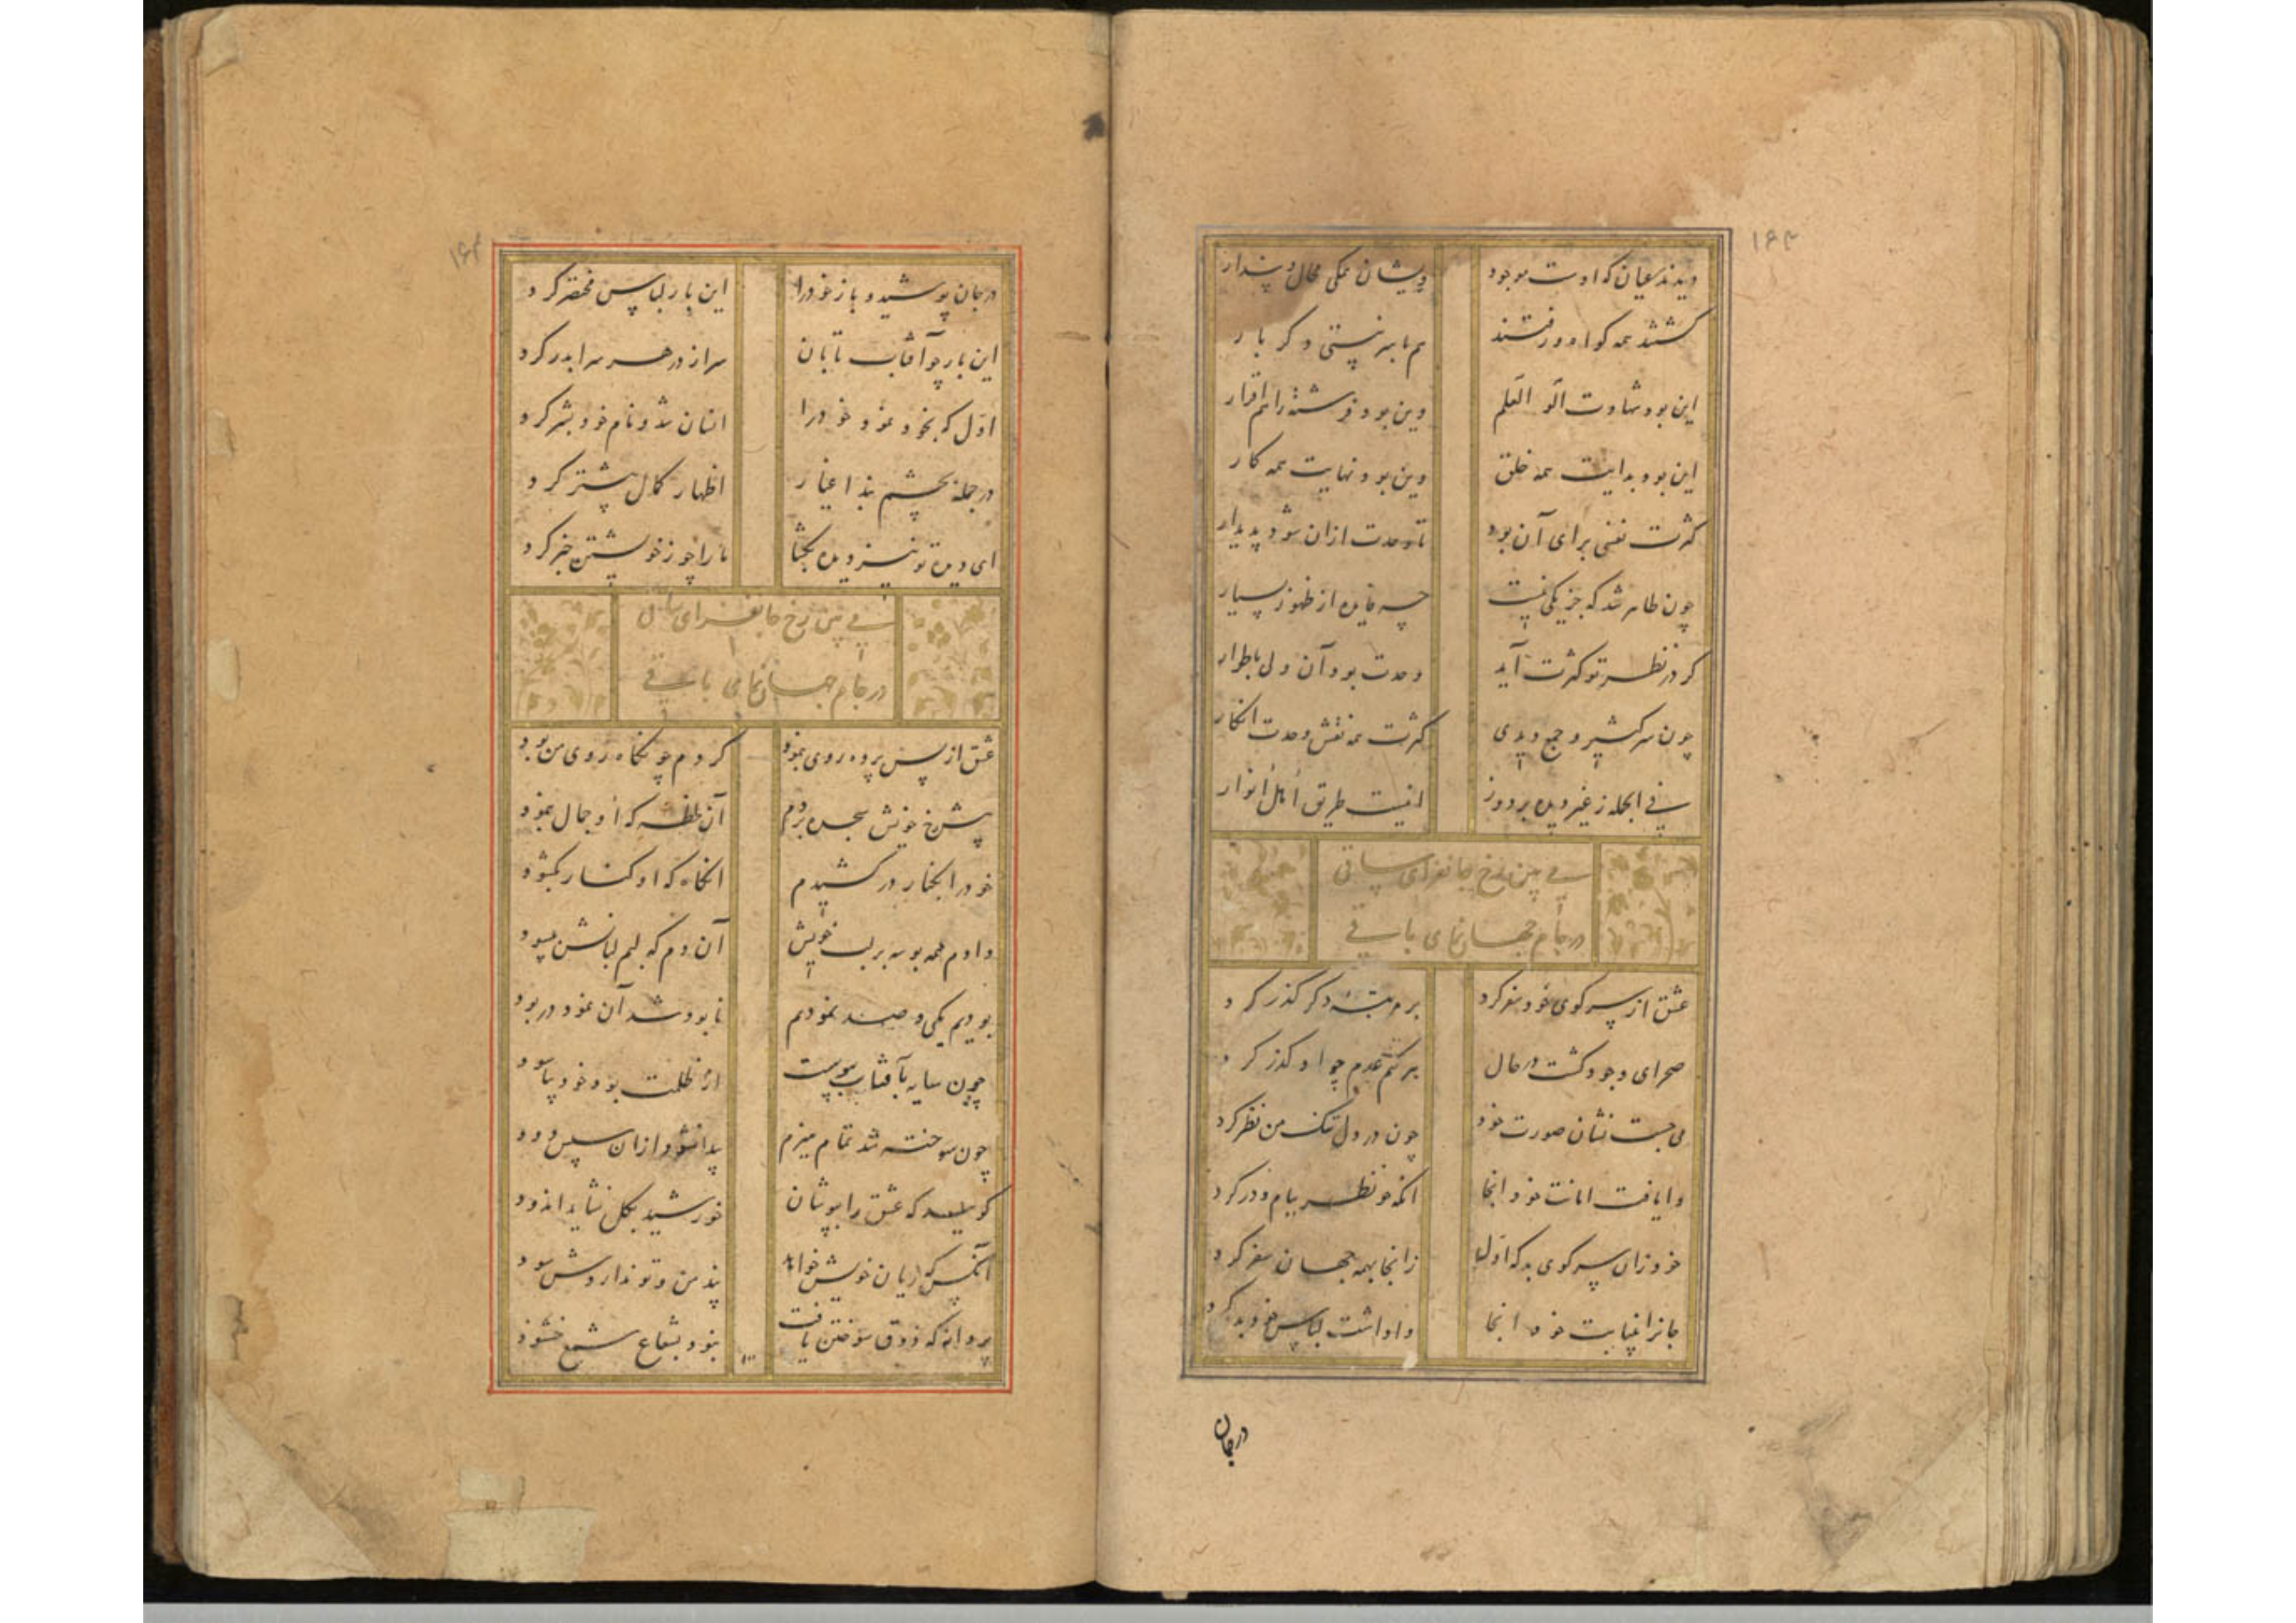 ۱۶۳
دیدند عیان که اوست موجود ویشان همگی محال و پندار
گشتند همه گواه و رفتند هم با سر نیستی دگر بار
این بود شهادت الو العلم وین بود فرشته را هم اقرار
این بود بدایت همه خلق وین بود نهایت همه کار
کثرت نفسی برای آن بود تا وحدت ازان شود پدیدار
چون ظاهر شد که جز یکی نیست چه فایده از ظهور بسیار
گر در نظر تو کثرت آید وحدت بود آن ولی باطوار
چون سر کثیر و جمع دیدی کثرت همه نقش وحدت انگار
فی الجمله ز غیر دیده بردوز اینست طریق اهل انوار
می بین رخ جانفزای ساقی
در جام جهان نمای باقی
عشق از سر کوی خود سفر کرد بر مرتبه دگر گذر کرد
صحرای وجود گشت در حال بر کتم عدم چو او گذر کرد
می جست نشان صورت خود چون در دل تنگ من نظر کرد
وایافت امانت خود آنجا آنگه نظر ببام و در کرد
خود زان سر کوی بد که اول زانجا بهمه جهان سفر کرد
جانرا نیابت خود آنجا واداشت لباس خود بدر کرد
در جان
۱۶۴
در جان پوشید و باز خود را این بار لباس مختصر کرد
این بار چو آفتاب تابان سر از در هر سرا بدر کرد
اول که بخود نمود خود را انسان شد و نام خود بشر کرد
در جمله بچشم بند اغیار اظهار کمال بیشتر کرد
ای دیده تو نیز دیده بگشا ما را چو ز خویشتن خبر کرد
می بین رخ جانفزای ساقی
در جام جهان نمای باقی
عشق از پس پرده روی بنمود کردم چو نگاه روی من بود
پیش رخ خویش سجده بردم آن لحظه که او جمال بنمود
خود را بکنار در کشیدم آنگاه که او کنار بگشود
دادم همه بوسه بر لب خویش آن دم که لبم لبانش میسود
بودیم یکی دو صد نمودیم نابود شد آن نمود در بود
چون سایه بآفتاب پیوست از ظلمت بود خود بیاسود
چون سوخته شد تمام هیزم پیدا نشود ازان سپس دود
گویند که عشق را بپوشان خورشید بگل نشاید اندود
آنکس که زیان خویش خواهد پند من و تو نداردش سود
پروانه که ذوق سوختن یافت نبود بشعاع شمع خشنود